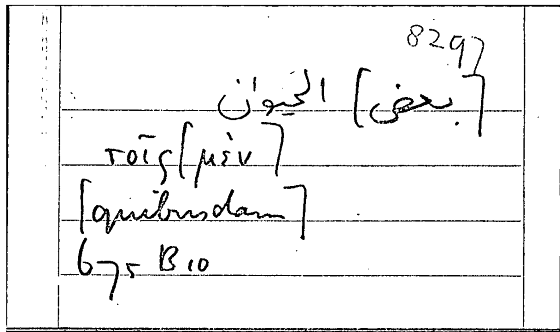 8297
[بعض] الحيوان
τοῖς [μὲν]
[quibusdam]
675 B10